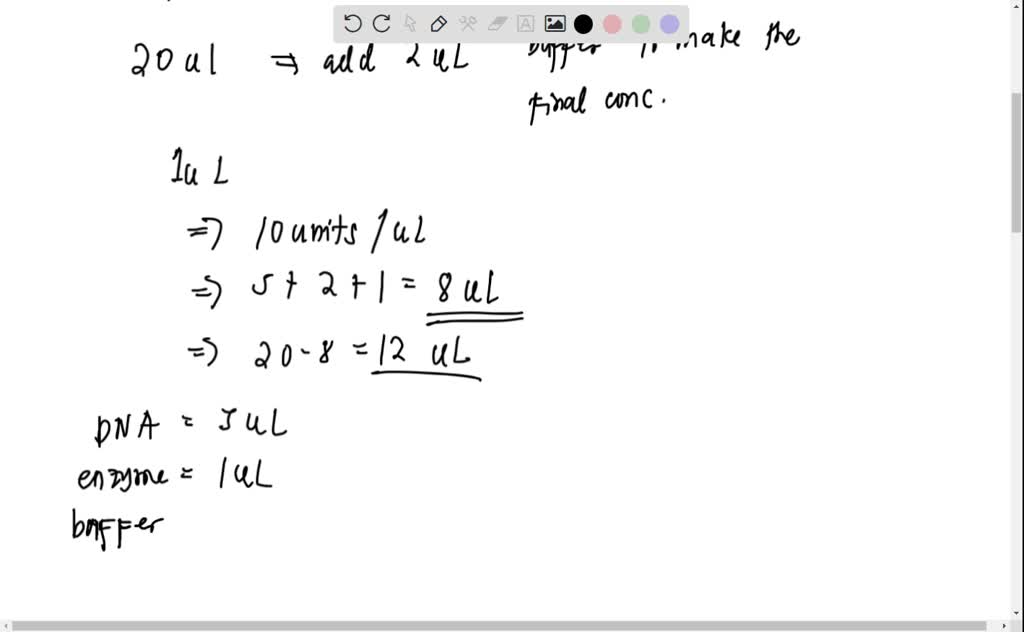 20 ul ⇒ add 2 uL buffer to make the
final conc.
1u L
⇒ 10 units / uL
⇒ 5 + 2 + 1 = 8 uL
⇒ 20 - 8 = 12 uL
DNA = 5 uL
enzyme = 1 uL
buffer